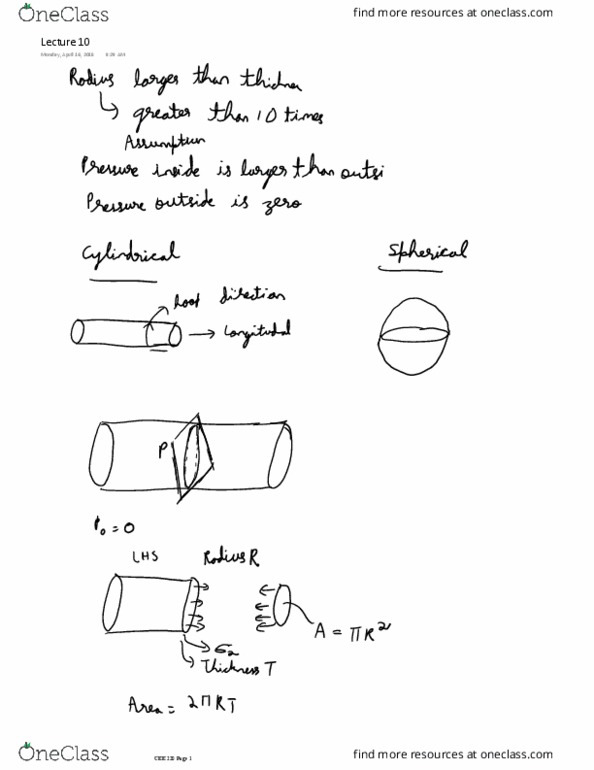 OneClass
find more resources at oneclass.com
Lecture 10
Monday, April 16, 2018
Radius larger than thickne
greater than 10 times
Assumption
Pressure inside is larger than outsi
Pressure outside is zero
Cylindrical
Spherical
hoop direction
Longitudal
P
P₀ = 0
LHS
Radius R
A = πR²
σ₂
Thickness T
Area = 2πRT
Page 1
OneClass
find more resources at oneclass.com